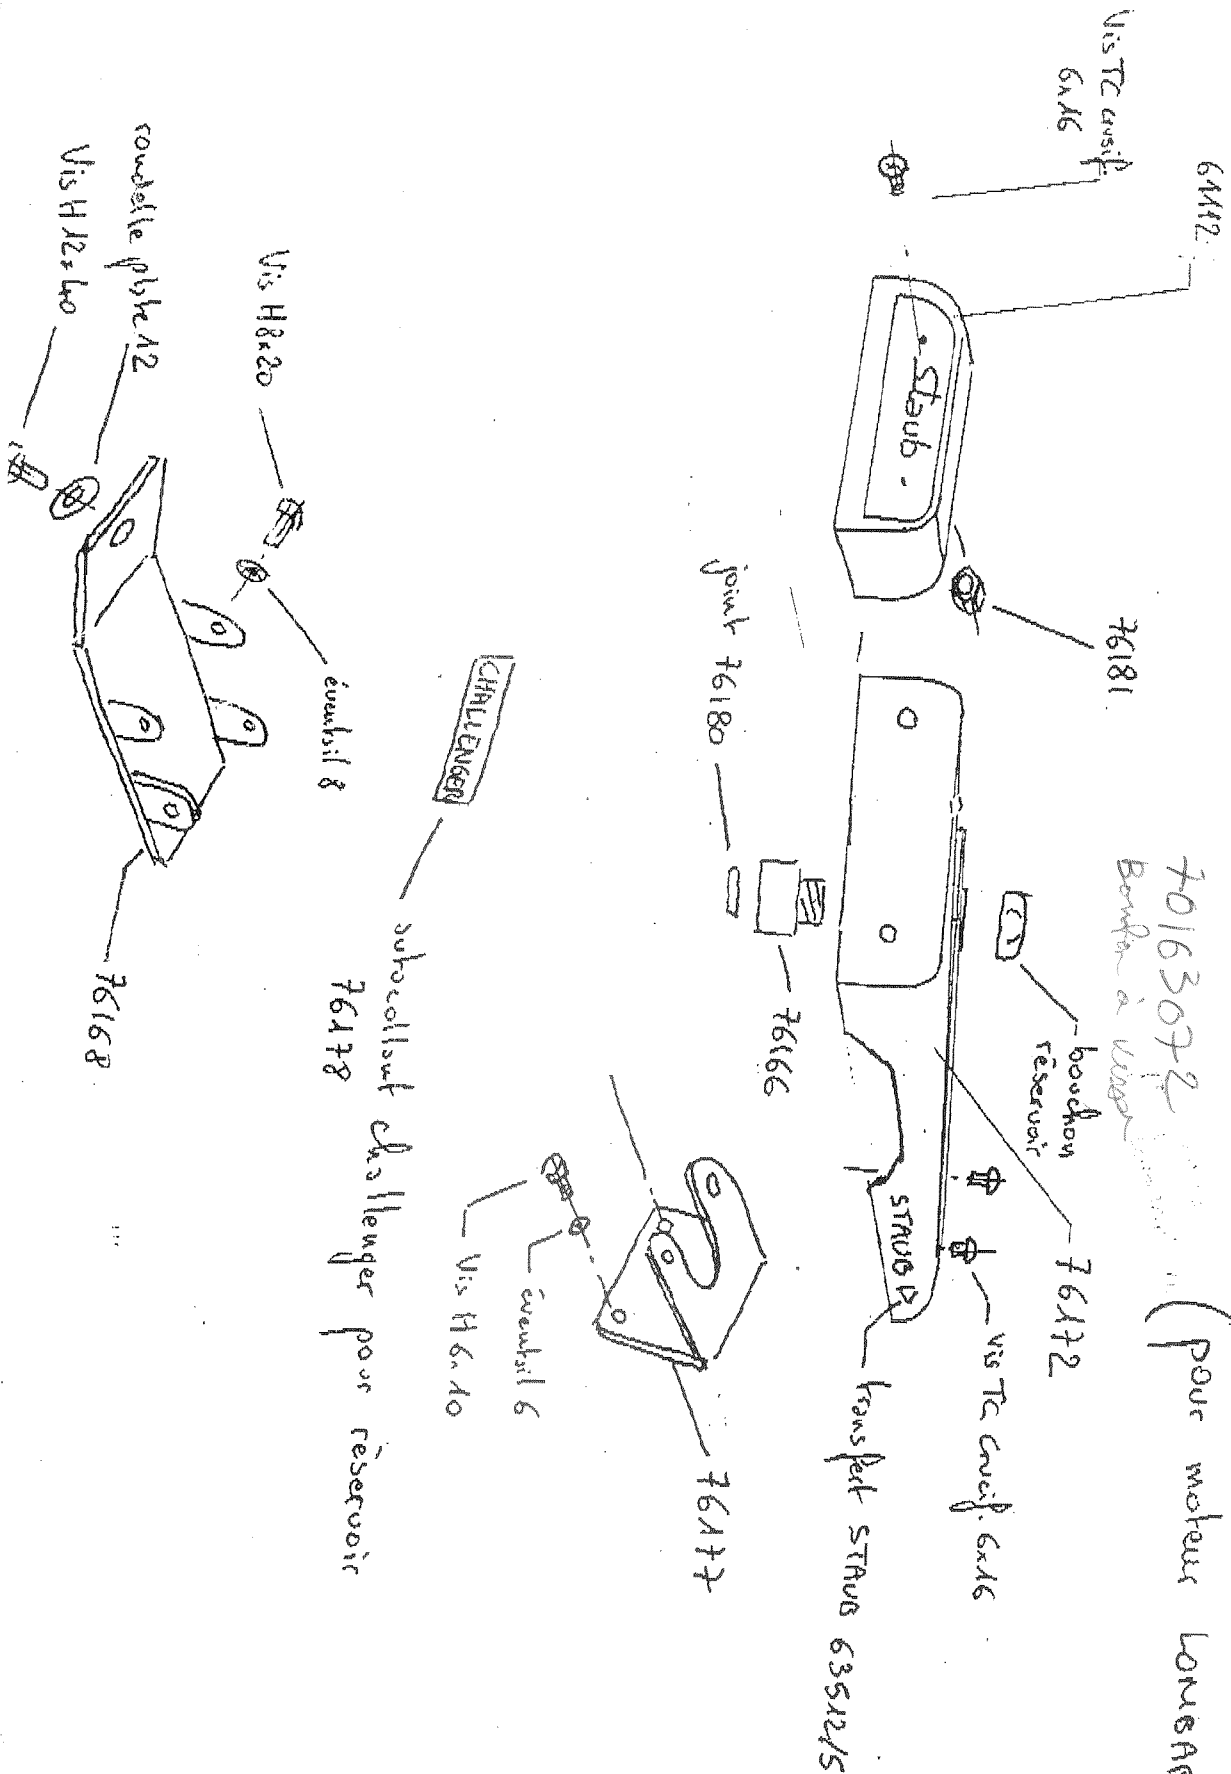 (pour moteur LOMBAR
70163072
à visser
61112
Vis TC crucif.
6x16
Staub
76181
bouchon
réservoir
76172
Vis TC crucif. 6x16
STAUB
transfert STAUB 63512/5
joint 76180
76166
76177
éventail 6
Vis H 6x10
CHALLENGER
autocollant challenger pour réservoir
76178
Vis H 8x20
éventail 8
rondelle plate 12
Vis H 12x40
76168